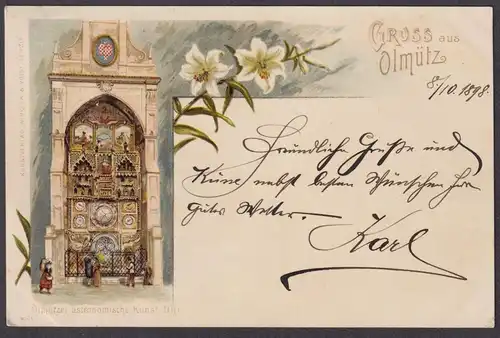 Gruss aus
Olmütz.
8/10. 1898.
Freundliche Grüße und
Küsse nebst besten Wünschen
gutes Wetter.
Karl
Olmützer astronomische Kunst Uhr